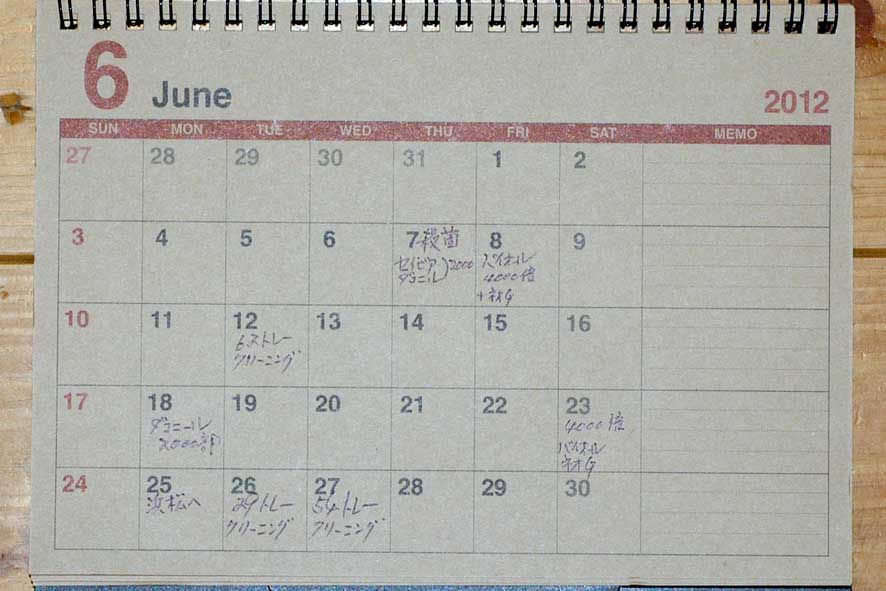 6 June
2012
SUN MON TUE WED THU FRI SAT MEMO
27 28 29 30 31 1 2
3 4 5 6 7 8 9
殺菌
セイビアー)2000
ダコニール
バイオール
4000倍
+ネオG
10 11 12 13 14 15 16
6ストレー
クリーニング
17 18 19 20 21 22 23
ダコニール
2000部
4000倍
バイオール
ネオG
24 25 26 27 28 29 30
浜松へ
29トレー
クリーニング
54トレー
クリーニング